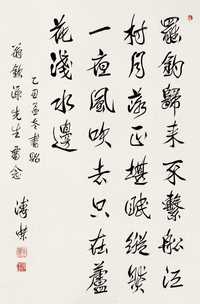 罷釣歸來不繫船江
村月落正堪眠縱然
一夜風吹去只在蘆
花淺水邊
乙丑孟冬書贈
先生留念
溥傑